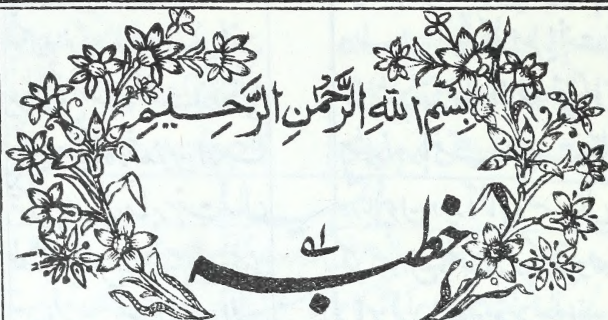 بِسْمِ اللهِ الرَّحْمٰنِ الرَّحِسِيمِ
خطبہ